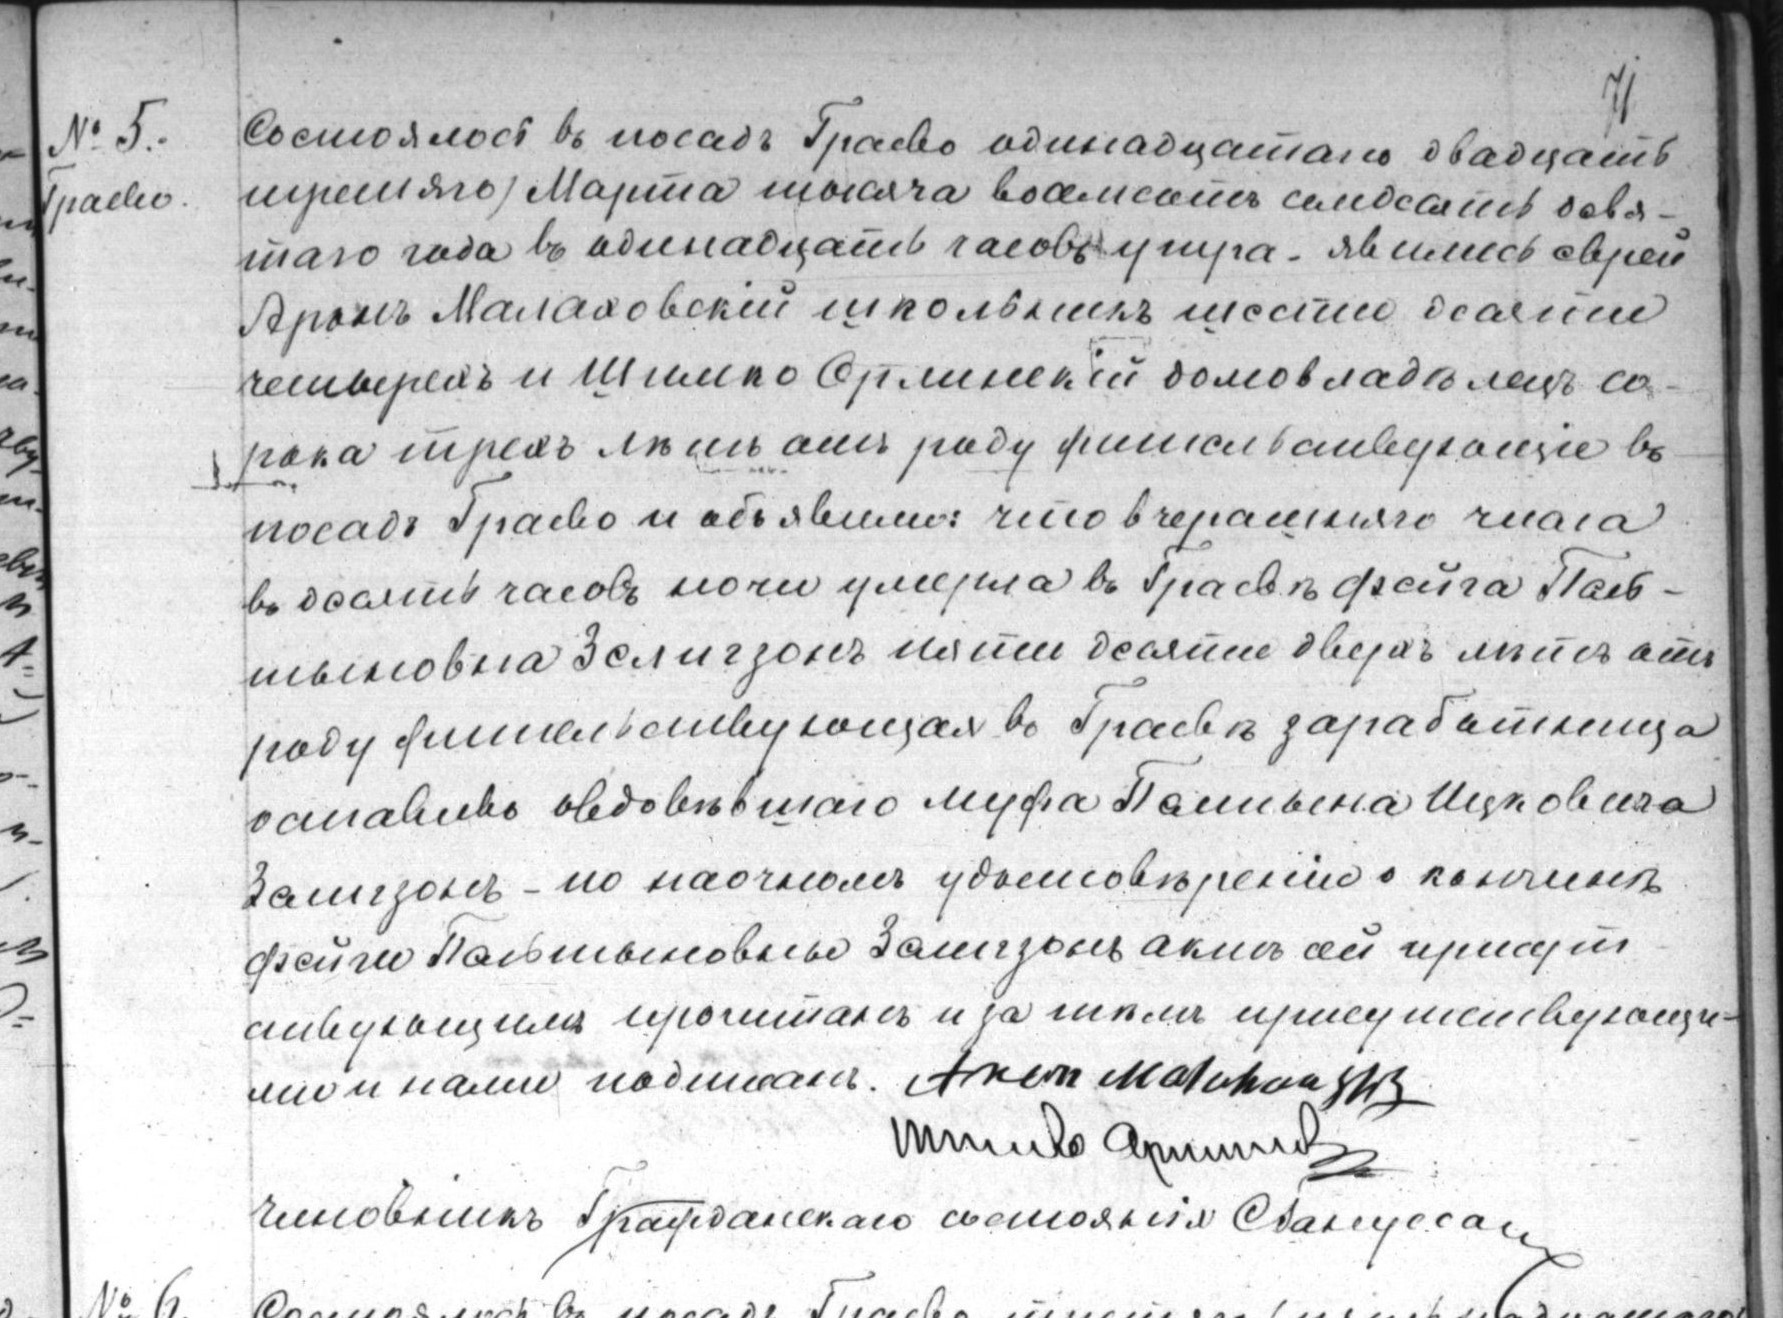 71
№ 5.
Граево.
Состоялось въ посадѣ Граево одинадцатаго двадцать
третьяго) Марта тысяча восемсотъ семдесятъ девя-
таго года въ одинадцать часовъ утра. явились евреи
Аронъ Малаховскій школьникъ шести десяти
четырехъ и Шимко Орлинскій домовладѣлецъ со-
рока трехъ лѣтъ отъ роду жительствующіе въ
посадѣ Граево и объявили: что вчерашняго числа
въ десять часовъ ночи умерла въ Граевѣ Фейга Паль-
тыновна Зелигзонъ пяти десяти двухъ лѣтъ отъ
роду жительствующая въ Граевѣ заработница
оставивъ овдовѣвшаго мужа Пальтына Ицковича
Зелигзонъ - по наочномъ удостовѣреніи о кончинѣ
Фейги Пальтыновны Зелигзонъ актъ сей присут
ствующимъ прочитанъ и за тѣмъ присутствующи-
ми и нами подписанъ.
Шимко
Чиновникъ Гражданскаго состоянія
№ 6.
Состоялось въ посадѣ Граево